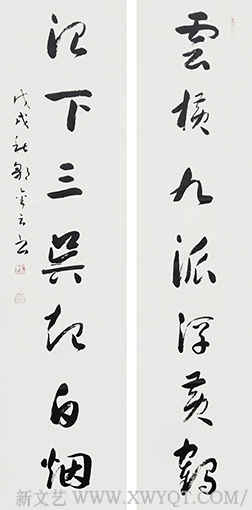 雲横九派浮黄鶴
浪下三吴起白烟
戊戌秋鄒
新文艺 WWW.XWYQT.COM